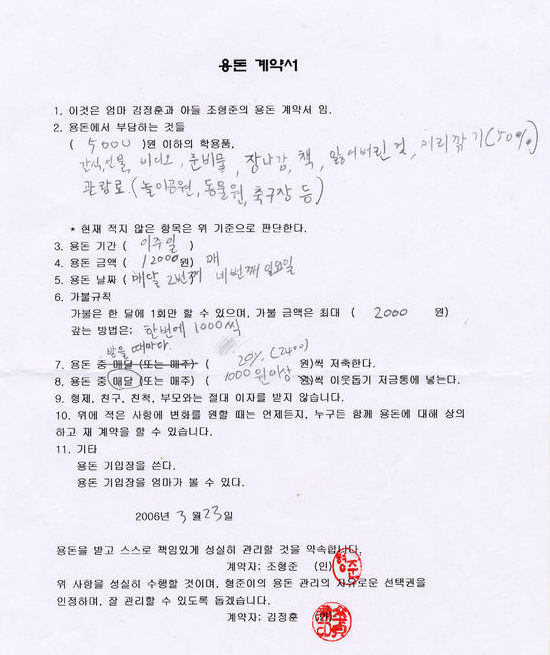 용돈 계약서
1. 이것은 엄마 김정훈과 아들 조형준의 용돈 계약서 임.
2. 용돈에서 부담하는 것들
( 5000 )원 이하의 학용품,
간식, 선물, 비디오, 준비물, 장난감, 책, 잃어버린 것, 머리깎기(50%)
관람료(놀이공원, 동물원, 축구장 등)
* 현재 적지 않은 항목은 위 기준으로 판단한다.
3. 용돈 기간 ( 이주일 )
4. 용돈 금액 ( 12000원) 매
5. 용돈 날짜 (매달 2번째 네번째 일요일
6. 가불규칙
가불은 한 달에 1회만 할 수 있으며, 가불 금액은 최대 ( 2000 원)
갚는 방법은: 한번에 1000씩
받을 때마다
7. 용돈 중 매달 (또는 매주) ( 20% (2400) 원)씩 저축한다.
8. 용돈 중 매달 (또는 매주) ( 1000원이상 원)씩 이웃돕기 저금통에 넣는다.
9. 형제, 친구, 친척, 부모와는 절대 이자를 받지 않습니다.
10. 위에 적은 사항에 변화를 원할 때는 언제든지, 누구든 함께 용돈에 대해 상의
하고 재 계약을 할 수 있습니다.
11. 기타
용돈 기입장을 쓴다.
용돈 기입장을 엄마가 볼 수 있다.
2006년 3월 23일
용돈을 받고 스스로 책임있게 성실히 관리할 것을 약속합니다.
계약자: 조형준 (인) 형준
위 사항을 성실히 수행할 것이며, 형준이의 용돈 관리의 자유로운 선택권을
인정하며, 잘 관리할 수 있도록 돕겠습니다.
계약자: 김정훈 (인)